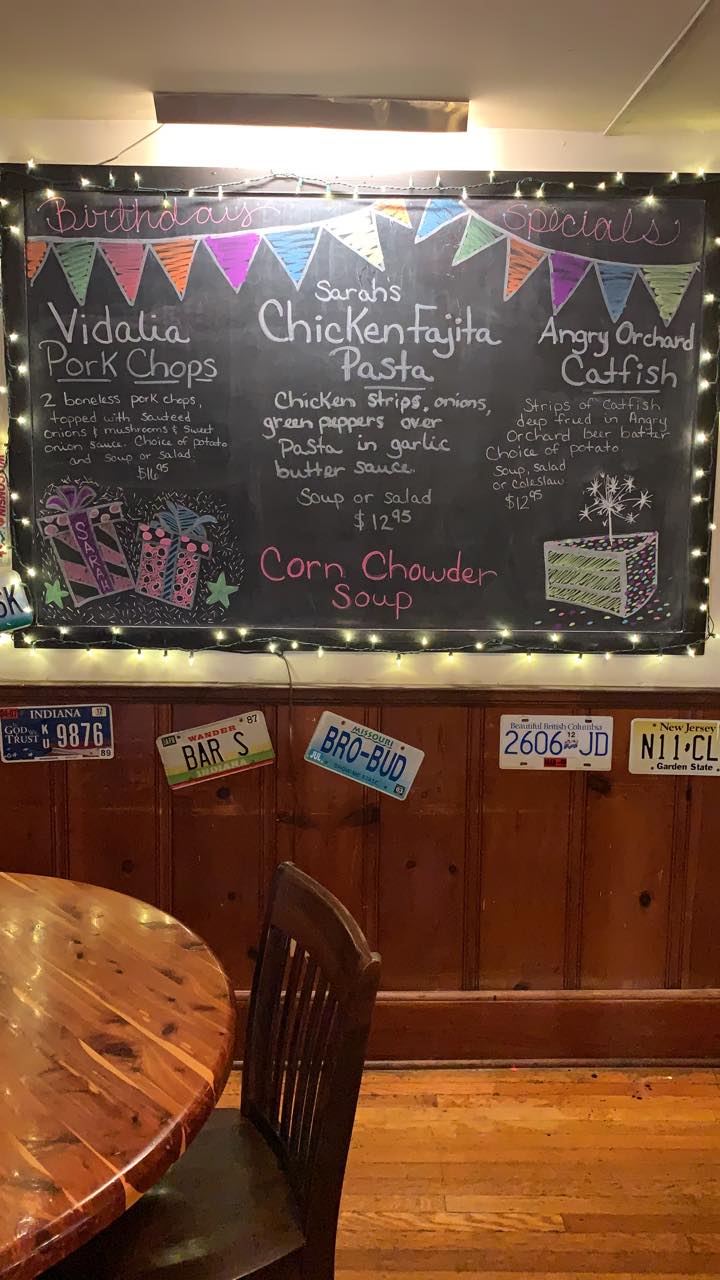 Birthday Specials
Vidalia
Pork Chops
2 boneless pork chops,
topped with sauteed
onions & mushrooms & sweet
onion sauce. Choice of potato
and soup or salad.
$16.95
SARAH
Sarahs
Chicken Fajita
Pasta
Chicken strips, onions,
green peppers over
Pasta in garlic
butter sauce.
Soup or salad
$12.95
Corn Chowder
Soup
Angry Orchard
Catfish
Strips of Catfish
deep fried in Angry
Orchard beer batter
Choice of potato.
Soup, salad
or coleslaw
$12.95
INDIANA 12
GOD TRUST K U 9876
89
WANDER 87
BAR S
INDIANA
MISSOURI
BRO-BUD
JUL SHOW-ME STATE 03
Beautiful British Columbia
2606 JD
12
New Jersey
N11 CL
Garden State